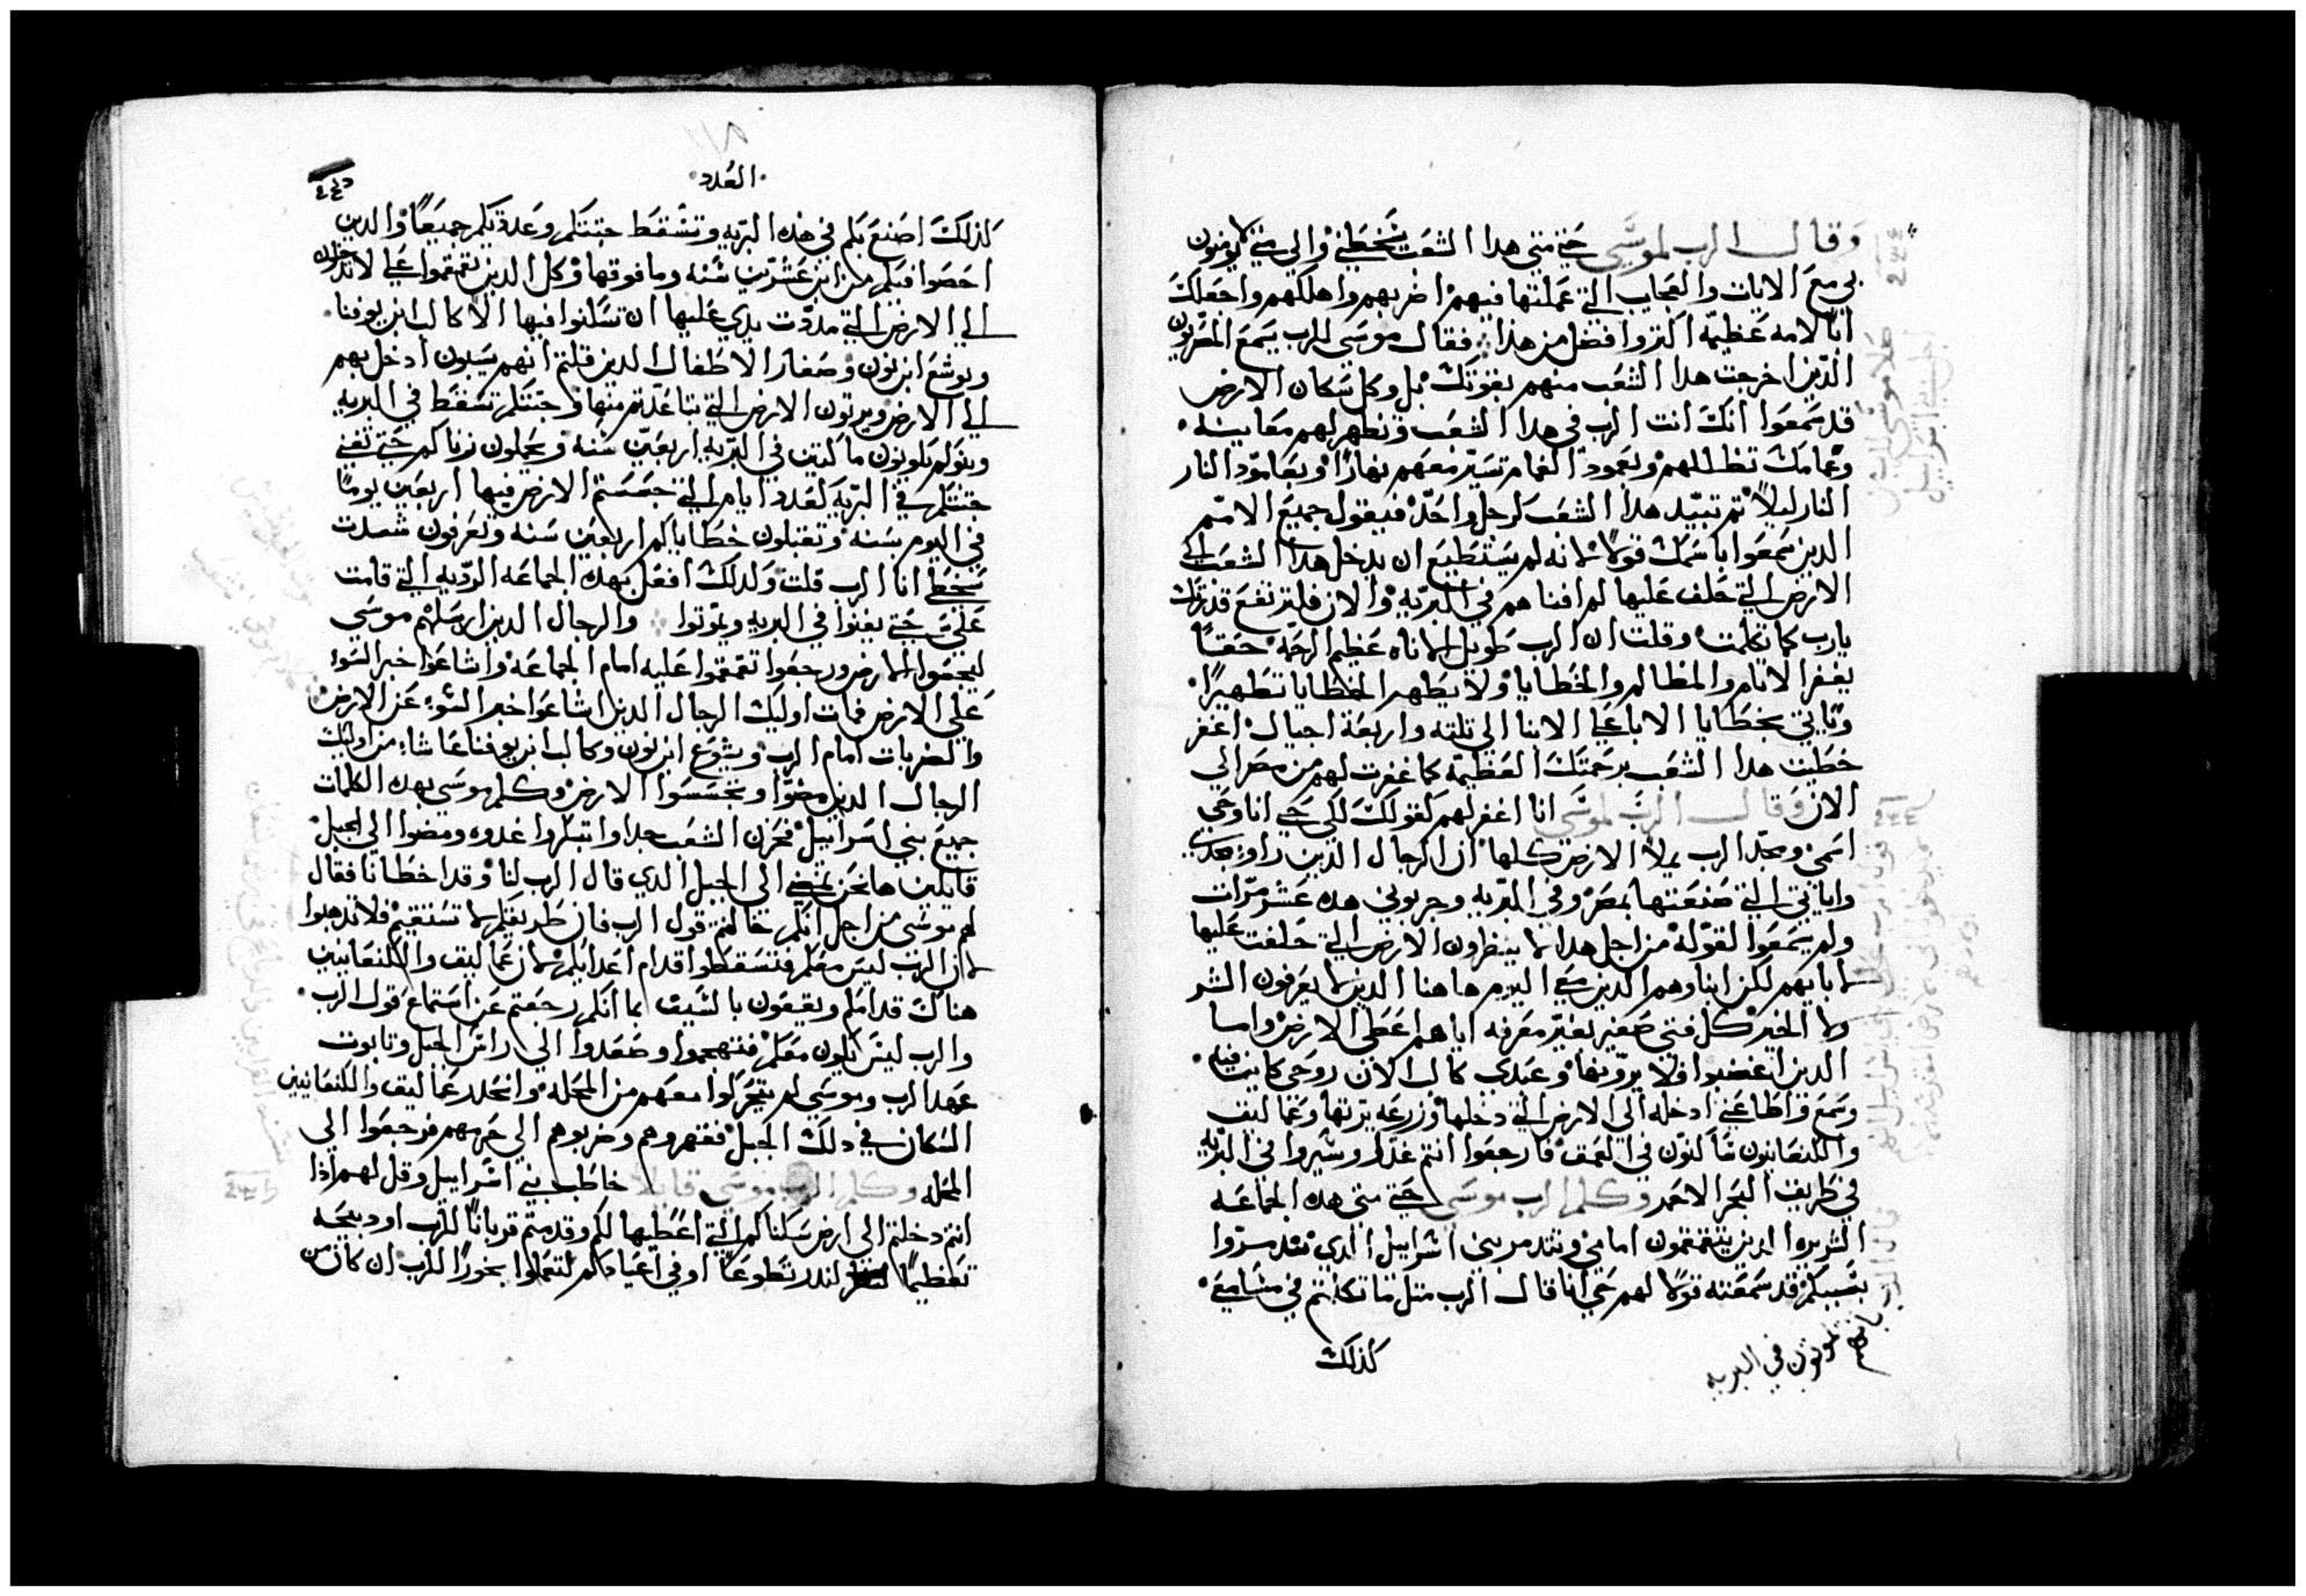 وقال الرب لموسي حتي متي هدا الشعب يسخطني والي متي لا يومنون
بي مع الايات والعجايب التي عملتها فيهم اضربهم واهلكهم واجعلك
ابًا لامه عظيمه اكتر وافضل من هذا فقال موسي للرب يسمع المصريون
الذين اخرجت هدا الشعب منهم بقوتك بل وكل سكان الارض
قد سمعوا انك انت الرب في هدا الشعب وتظهر لهم معاينه
وغمامك تظللهم وبعمود الغمام تسير معهم نهارًا وبعامود النار
النار ليلاً تم تبيد هدا الشعب كرجل واحد فيقول جميع الامم
الدين سمعوا باسمك قولاً لانه لم يستطيع ان يدخل هدا الشعب الي
الارض التي حلف عليها لهم افناهم في البريه والان فلترتفع قدرتك
يارب كما تكلمت وقلت ان الرب طويل الاناه عظيم الرحمه حقًا
يغفر الاتام والمظالم والخطايا ولا يطهر الخطايا تطهيرًا
وياتي بخطايا الابا علي الابنا الي تلته واربعة اجيال اغفر
خطيت هدا الشعب برحمتك العظيمه كما غفرت لهم من مصر الي
الان وقال الرب لموسي انا اغفر لهم كقولك لكن حي انا وحي
اسمي ومجد الرب يملا الارض كلها ان الرجال الدين راوا مجدي
واياتي التي صنعتها بمصر وفي البريه وجربوني هده عشر مرات
ولم يسمعوا لقولي من اجل هدا لا ينظرون الارض التي حلفت عليها
لابايهم لكن ابناوهم الدين معي اليوم هاهنا الدين لا يعرفون الشر
ولا الخير كل فتي صغير بغير معرفه اياهم اعطي الارض واما
الدين اغضبوا فلا يرونها وعبدي كالب الان روحي كاينه فيه
وسمع واطاعني ادخله الي الارض التي دخلها وزرعه يرتها وعماليق
والكنعانيون ساكنون في العمق فارجعوا انتم غدًا وسيروا في البريه
في طريق البحر الاحمر وكلم الرب موسي حتي متي هده الجماعه
الشريره الدين يتقمقمون امامي وتدمر بني اسراييل الدي تدمروا
بسببكم قد سمعته قولا لهم حي انا قال الرب متل ما تكلمتم في مسامعي
كذلك
بانهم يموتون في البريه
العدد
كذلك اصنع بكم في هذه البريه وتسقط جتتكم وعدة بكم جميعًا والدين
احصوا فيكم من ابن عشرين سنه وما فوقها وكل الدين تقمقموا علي لا تدخلون
الي الارض التي مددت يدي عليها ان تسكنوا فيها الا كالب ابن يوفنا
ويوشع ابن نون وصغار الاطفال الدين قلتم انهم يسبون ادخل بهم
الي الارض ويرتون الارض التي تباعدتم منها وجتتكم تسقط في البريه
وبنوكم يكونون ماكتين في البريه اربعين سنه ويحملون زناكم حتي تفني
جتتكم في البريه كعدد ايام التي جسستم الارض فيها اربعين يومًا
في اليوم بسنه وتقبلون خطاياكم اربعين سنه وتعرفون شدت
سخطي انا الرب قلت ولدلك افعل بهده الجماعه الرديه التي قامت
علي حتي يفنوا في البريه ويموتوا والرجال الدين ارسلهم موسي
ليجسوا الارض ورجعوا تقمقموا عليه امام الجماعه واشاعوا خبر السوء
علي الارض فمات اوليك الرجال الدين اشاعوا خبر السوء عن الارض
والضربات امام الرب ويشوع ابن نون وكالب ابن يوفنا عاشا من اوليك
الرجال الدين مضوا وتجسسوا الارض وكلم موسي بهده الكلمات
جميع بني اسراييل فحزن الشعب جدا وابتكروا غدوه ومضوا الي الجبل
قايلين ها نحن نمضي الي الجبل الدي قال الرب لنا وقد اخطانا فقال
لهم موسي من اجل انكم خالفتم قول الرب فان طريقكم لا تستقيم فلا تدهبوا
لان الرب ليس معكم فتسقطوا قدام اعدايكم لان عماليق والكنعانيين
هناك قدامكم وتقعون بالسيف بما انكم رجعتم عن استماع قول الرب
والرب ليس يكون معكم فتهجموا وصعدوا الي راس الجبل وتابوت
عهد الرب وموسي لم يتحركوا معهم من المحله وانحدر عماليق والكنعانيين
السكان في دلك الجبل فقهروهم وضربوهم الي حرمهم فرجعوا الي
المحله وكلم الرب موسي قايلا خاطب بني اسراييل وقل لهم اذا
انتم دخلتم الي ارض سكناكم التي اعطيها لكم وقدمتم قربانًا للرب او دبيحه
تعظيمًا لندر تطوعًا او في اعيادكم لتعملوا بخورًا للرب ان كان من